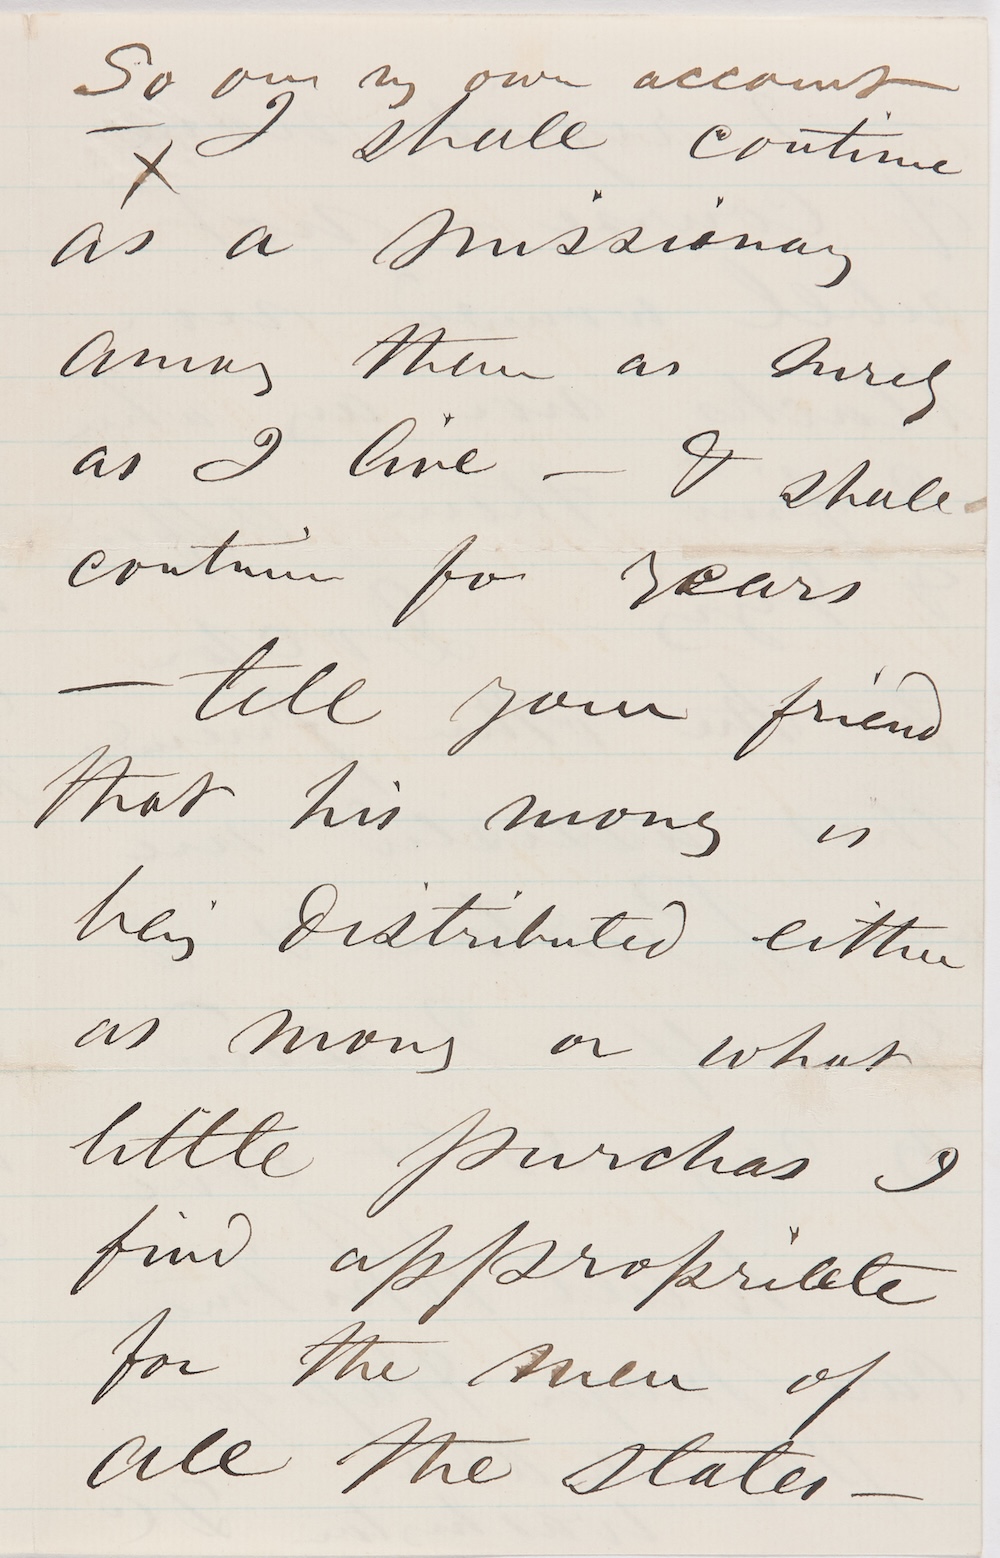 So on my own account
— I shall continue
x
as a missionary
among them as surely
as I live — & shall
continue for years
— tell your friend
that his money is
being distributed either
as money or what
little purchas I
find appropriate
for the men of
all the states —